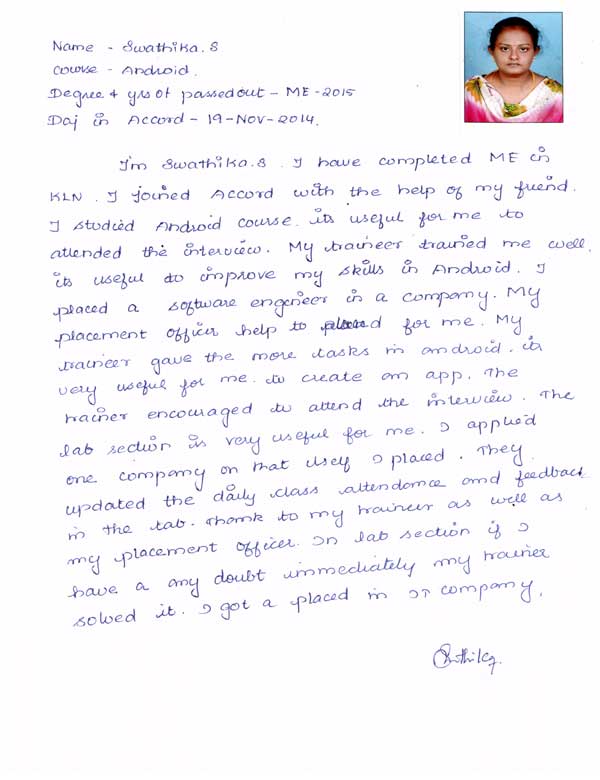 Name - Swathika.S
Course - Android.
Degree & yrs of passedout - ME - 2015
Doj in Accord - 19-Nov-2014.
I'm Swathika.S. I have completed ME in
KLN. I joined Accord with the help of my friend.
I studied Android course. its useful for me to
attended the interview. My traineer trained me well.
its useful to improve my skills in Android. I
placed a software engineer in a company. My
placement officer help to placed for me. My
traineer gave the more tasks in android. its
very useful for me to create an app. The
trainer encouraged to attend the interview. The
lab section is very useful for me. I applied
one company on that itself I placed. They
updated the daily class attendance and feedback
in the tab. Thank to my traineer as well as
my placement officer. In lab section if I
have a any doubt immediately my trainer
solved it. I got a placed in IT company.
Swathika.